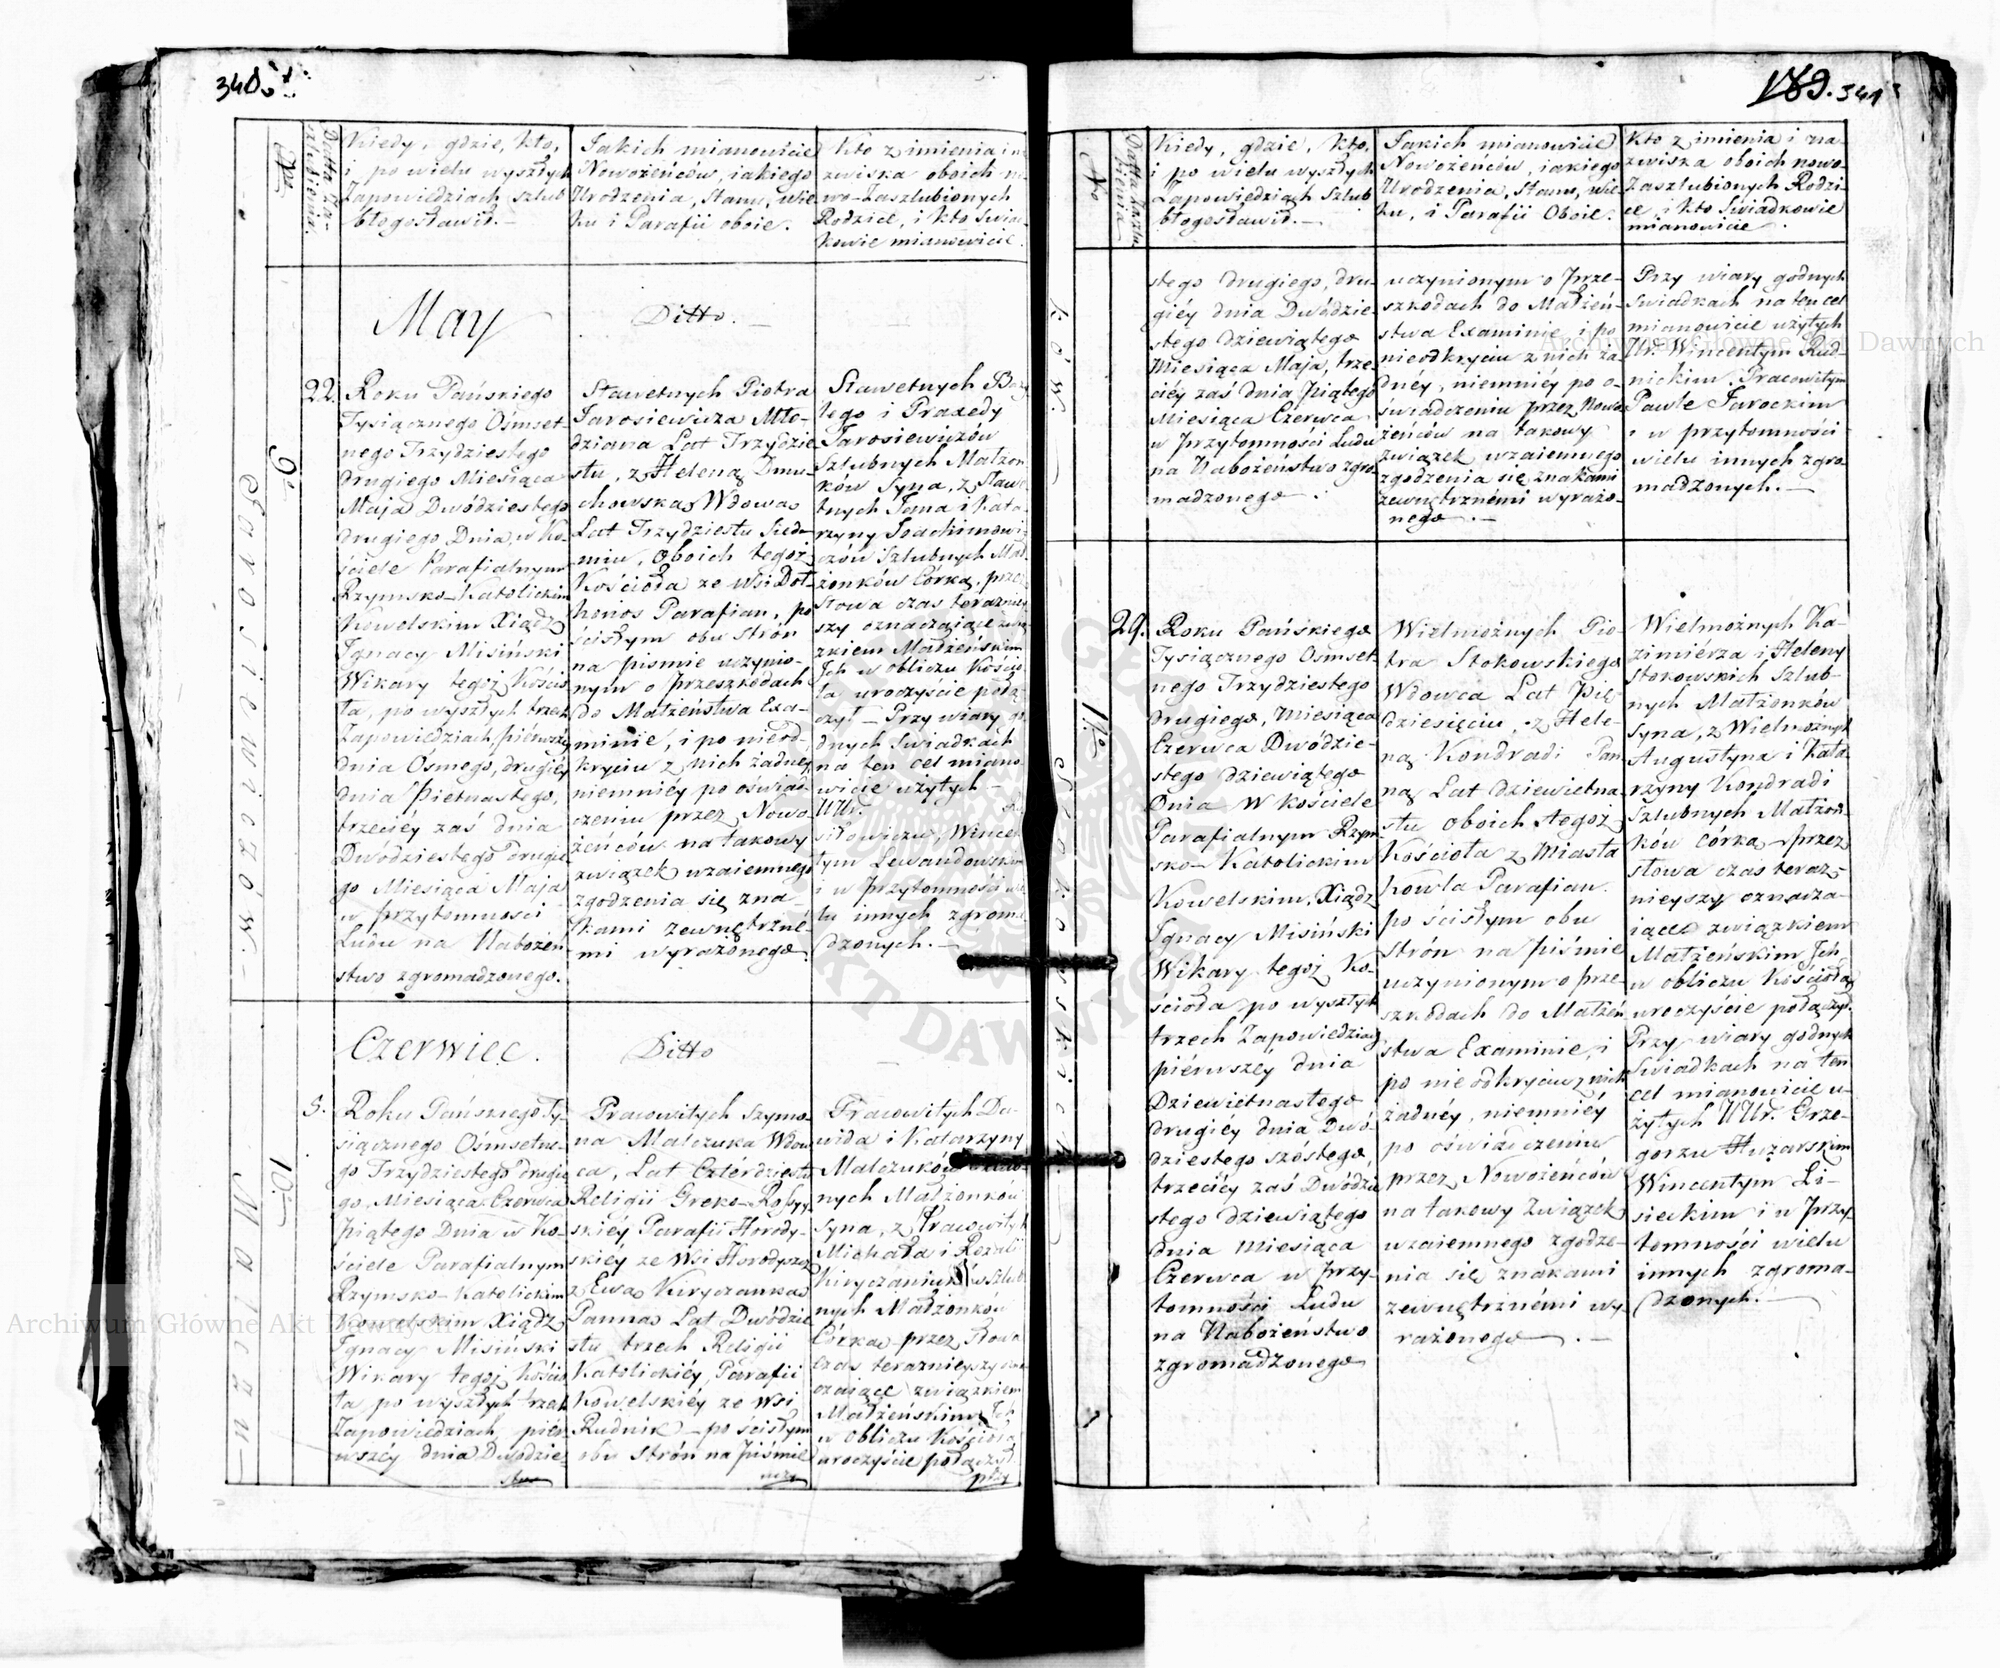 340
No
Data Zaślubienia.
Kiedy, gdzie, kto,
i po wielu wyszłych
Zapowiedziach szlub
błogosławił.—
Jakich mianowicie
Nowożeńców, iakiego
Urodzenia, Stanu, Wie
ku i Parafii oboie.
Kto z imienia i na
zwiska oboich no
wo-Zaszlubionych
Rodzice, i kto Swiad
kowie mianowicie.
May
Ditto.—
9o
Jarosiewiczów.—
22.
Roku Pańskiego
Tysiącznego Ośmset-
nego Trzydziestego
drugiego Miesiąca
Maja Dwódziestego
drugiego Dnia, w Ko-
ściele Parafialnym
Rzymsko-Katolickim
Kowelskim Xiądz
Ignacy Misiński
Wikary tegoż Kościo
ła, po wyszłych trzech
Zapowiedziach, pierwszey
dnia Osmego, drugiéy
dnia Piętnastego,
trzeciéy zaś dnia
Dwódziestego drugie-
go Miesiąca Maja
w przytomności
Ludu na Nabożeń
stwo zgromadzonego.
Sławetnych Piotra
Jarosiewicza Mło-
dziana Lat Trzydzie
stu, z Heleną Dmu-
chowską Wdową
Lat Trzydziestu Siedm
miu, oboich tegoż
Kościoła ze wsi Doł-
honos Parafian, po
ścisłym obu strón
na pismie uczynio-
nym o przeszkodach
do Małżeństwa Exa-
minie, i po nieod-
kryciu z nich żadney
niemniéy po oświad-
czeniu przez Nowo
żeńców na takowy
związek wzaiemnego
zgodzenia się zna-
kami zewnętrzné-
mi wyrażonego.
Sławetnych Bazy
lego i Praxedy
Jarosiewiczów
Szlubnych Małżon
ków Syna, z Sławe
tnych Jana i Kata-
rzyny Joachimowi
czów Szlubnych Mał
żonków Córką, przez
Słowa czas teraźniey
szy oznaczaiące zwią
zkiem Małżeńskim
Ich w obliczu Kościo
ła uroczyście połą
czył— Przy wiary go
dnych Swiadkach
na ten cel miano-
wicie użytych—
UUr.
siłowiczu, Wincen
tym Lewandowskim
i w Przytomności wie
lu innych zgroma
dzonych.—
Czerwiec.
Ditto
10o
Malczuk—
5.
Roku Pańskiego Ty-
siącznego Ośmsetne-
go Trzydziestego drugie
go, Miesiąca Czerwca
Piątego Dnia w Ko-
ściele Parafialnym
Rzymsko-Katolickim
Kowelskim Xiądz
Ignacy Misiński
Wikary tegoż Kościo
ła, po wyszłych trzech
Zapowiedziach, pier-
wszéy dnia Dwódzie
stego
Pracowitych Szymo
na Malczuka Wdow
ca, Lat Cztérdziestu
Religii Greko-Rossyy
skiéy Parafii Horody-
skiéy ze Wsi Horodyszcz
z Ewą Kiryczanką
Panną Lat Dwódzie
stu trzech Religii
Katolickiéy, Parafii
Kowelskiéy ze Wsi
Rudnik—po ścisłym
obu strón na piśmie
uczy
Pracowitych Da-
wida i Katarzyny
Malczuków Szlub
nych Małżonków
Syna, z Pracowitych
Michała i Rozalii
Kiryczaniuków Szlub
nych Małżonków
Córką przez Słowa
Czas teraznieyszy ozna
czaiące związkiem
Małżeńskim Ich
w obliczu Kościoła
uroczyście połączył
przy
189. 341
No
Data Zaszlu
bienia.
Kiedy, gdzie, kto,
i po wielu wyszłych
Zapowiedziach Szlub
błogosławił.—
Jakich mianowicie
Nowożeńców, iakiego
Urodzenia, Stanu, wie
ku, i Parafii Oboie.
Kto z imienia i na-
zwiska oboich nowo-
Zaszlubionych Rodzi-
ce, i Kto Swiadkowie
mianowicie.
ków.—
stego drugiego, dru-
giéy dnia Dwódzie-
stego dziewiątego
Miesiąca Maja, trze-
ciéy zaś dnia Piątego
Miesiąca Czerwca
w Przytomności Ludu
na Nabożeństwo zgro-
madzonego.
uczynionym o prze-
szkodach do Małżeń-
stwa Examinie, i po
nieodkryciu z nich ża-
dnéy, niemniéy po o-
świadczeniu przez Nowo
żeńców na takowy
związek wzaiemnego
zgodzenia się znakami
zewnętrznémi wyrażo-
nego.—
Przy wiary godnych
Swiadkach na ten cel
mianowicie użytych
Ur. Wincentym Rud-
nickim. Pracowitym
Pawle Jarockim
i w przytomności
wielu innych zgro-
madzonych.—
11o
Stokowskich
29.
Roku Pańskiego
Tysiącznego Ośmset-
nego Trzydziestego
drugiego, Miesiąca
Czerwca Dwódzie-
stego dziewiątego
Dnia w Kościele
Parafialnym Rzym-
sko-Katolickim
Kowelskim, Xiądz
Ignacy Misiński
Wikary tegoż Ko-
ścioła po wyszłych
trzech Zapowiedziach
piérwszéy dnia
Dziewiétnastego
drugiéy dnia Dwó-
dziestego szóstego,
trzeciéy zaś Dwódzie
stego dziewiątego
dnia Miesiąca
Czerwca w przy-
tomności Ludu
na Nabożeństwo
zgromadzonego
Wielmożnych Pio-
tra Stokowskiego
Wdowca Lat Pię-
dziesięciu, z Hele-
ną Kondradi Pan
ną Lat dziewiétna
stu oboich tegoż
Kościoła z Miasta
Kowla Parafian.
po ścisłym obu
strón na piśmie
uczynionym o prze-
szkodach do Małżeń
stwa Examinie, i
po nieodkryciu z nich
żadnéy, niemniéy
po oświadczeniu
przez Nowożeńców
na takowy Związek
wzaiemnego zgodze-
nia się znakami
zewnętrznémi wy-
rażonego.—
Wielmożnych Ka-
zimierza i Heleny
Stokowskich Szlub-
nych Małżonków
Syna, z Wielmożnych
Augustyna i Kata-
rzyny Kondradi
Szlubnych Małżon-
ków córką przez
słowa czas teraz-
nieyszy oznacza-
iące związkiem
Małżeńskim Ich
w obliczu Kościoła
uroczyście połączył.
Przy wiary godnych
Swiadkach na ten
cel mianowicie u-
żytych UUr. Grze-
gorzu Huzarskim
Wincentym Li-
sieckim i w Przy-
tomności wielu
innych zgroma-
dzonych.—
Archiwum Główne Akt Dawnych
Archiwum Główne Akt Dawnych